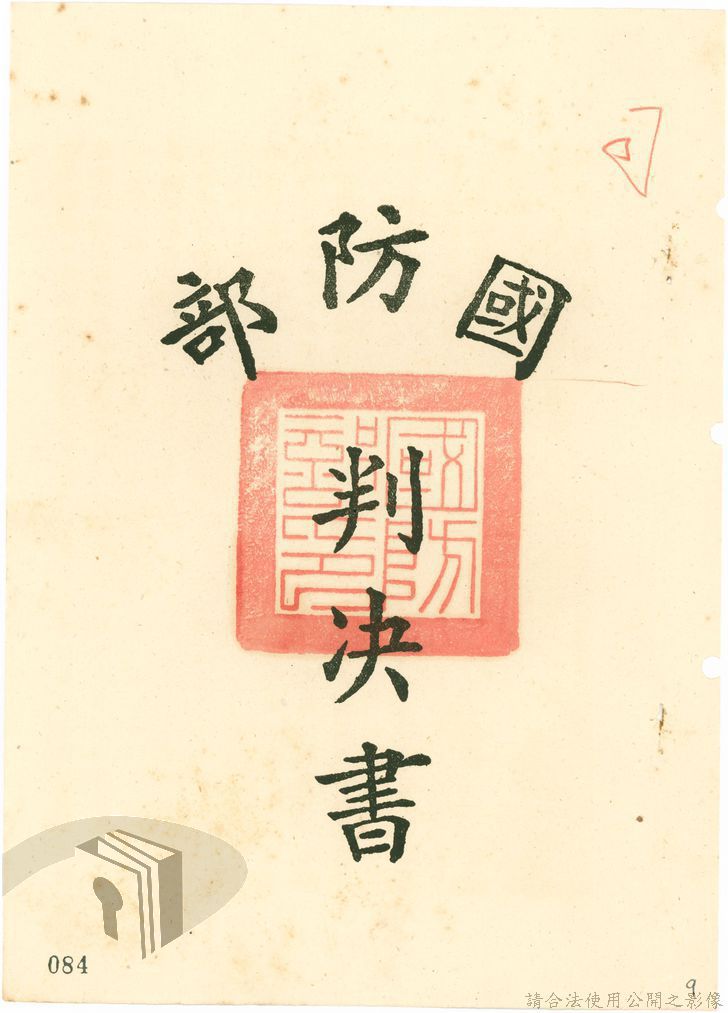 國防部
判決書
國防部之印
084
9
請合法使用公開之影像